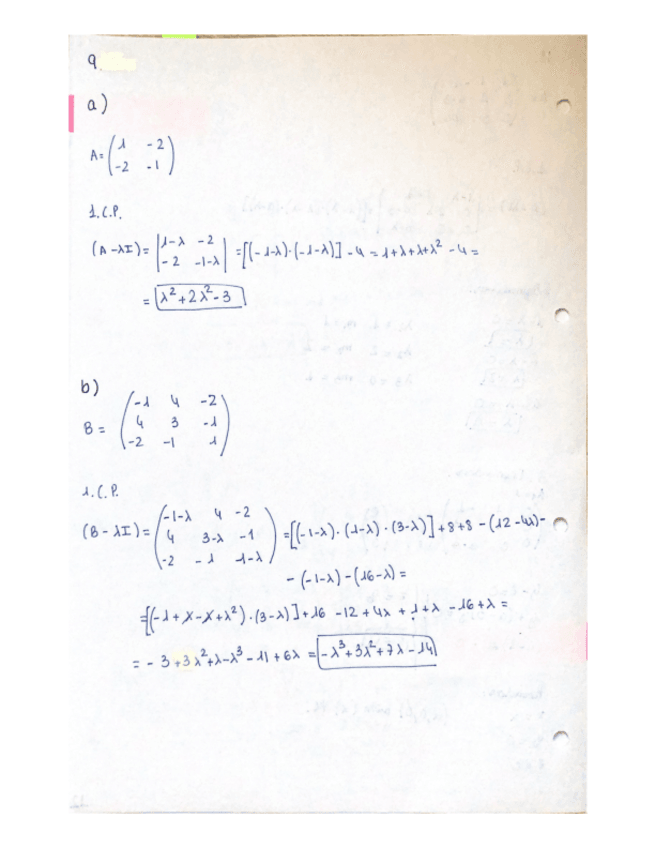 9.
a)
A = ( 1 -2
-2 -1 )
1.C.P.
(A - λI) = | 1-λ -2
-2 -1-λ | = [(-1-λ)·(-1-λ)] - 4 = 1+λ+λ+λ² - 4 =
= λ² + 2λ² - 3
b)
B = ( -1 4 -2
4 3 -1
-2 -1 1 )
1.C.P.
(B - λI) = ( -1-λ 4 -2
4 3-λ -1
-2 -1 1-λ ) = [(-1-λ)·(1-λ)·(3-λ)] + 8 + 8 - (12 - 4λ) -
- (-1-λ) - (16-λ) =
= [(-1 + λ - λ + λ²)·(3-λ)] + 16 - 12 + 4λ + 1 + λ - 16 + λ =
= - 3 + 3λ² + λ - λ³ - 11 + 6λ = -λ³ + 3λ² + 7λ - 14